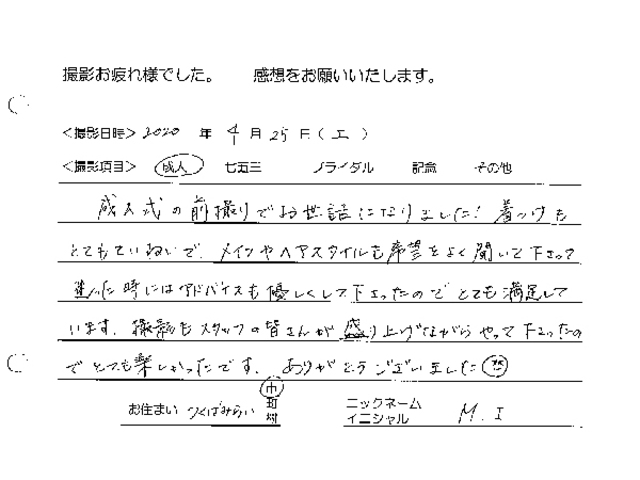 撮影お疲れ様でした。　感想をお願いいたします。
<撮影日時> 2020 年 4 月 25 日 (土)
<撮影項目> 成人 七五三 ブライダル 記念 その他
成人式の前撮りでお世話になりました! 着つけも
とてもていねいで、メイクやヘアスタイルも希望をよく聞いて下さって
迷った時にはアドバイスも優しくして下さったのでとても満足して
います。撮影もスタッフの皆さんが盛り上げながらやって下さったの
でとても楽しかったです。ありがとうございました
お住まい つくばみらい 市 町 村 ニックネーム イニシャル M.I